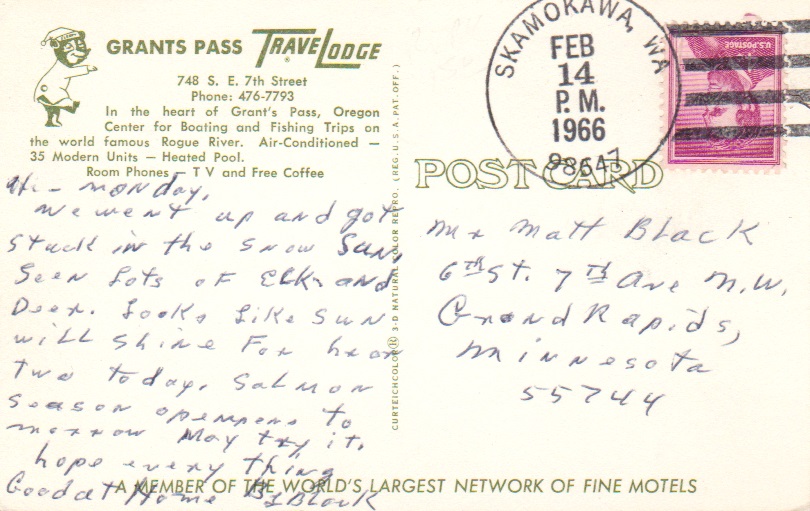 GRANTS PASS TRAVELODGE
®
748 S. E. 7th Street
Phone: 476-7793
In the heart of Grant's Pass, Oregon
Center for Boating and Fishing Trips on
the world famous Rogue River. Air-Conditioned —
35 Modern Units — Heated Pool.
Room Phones — TV and Free Coffee
Hi - monday,
we went up and got
stuck in the snow Sun,
Seen Lots of Elk and
Deer. Looks Like Sun
will shine For hour
two today. Salmon
season opens to
morrow May try it.
hope every thing
Good at Home Black
CURTEICHCOLOR® 3-D NATURAL COLOR REPRO. (REG. U.S.A. PAT. OFF.)
SKAMOKAWA, WA
FEB
14
P. M.
1966
98647
U.S. POSTAGE
POST CARD
Mr Matt Black
6th St. 7th Ave N.W.
Grand Rapids,
Minnesota
55744
A MEMBER OF THE WORLD'S LARGEST NETWORK OF FINE MOTELS